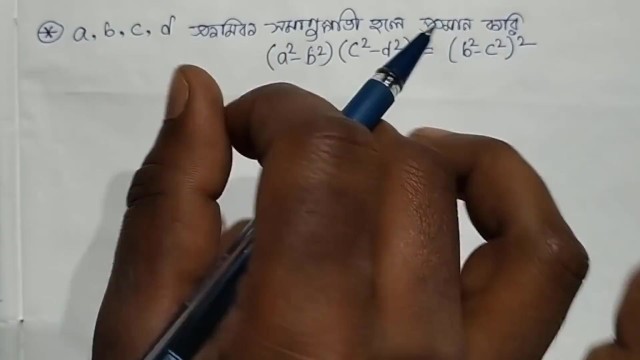 * a, b, c, d ক্রমিক সমানুপাতী হলে প্রমান করি
(a²-b²) (c²-d²) = (b²-c²)²